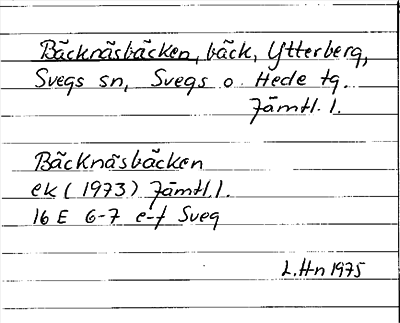 Bäcknäsbäcken, bäck, Ytterberg,
Svegs sn, Svegs o. Hede tg.
Jämtl. l.
Bäcknäsbäcken
ek (1973) Jämtl. l.
16 E 6-7 e-f Sveg
L. Hn 1975